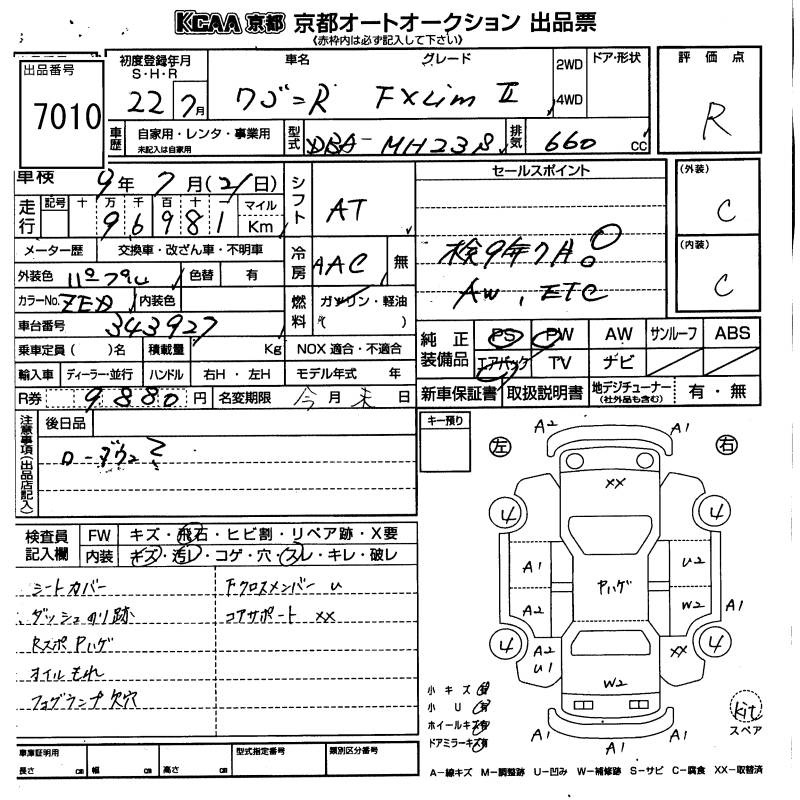 KCAA 京都 京都オートオークション 出品票
(赤枠内は必ず記入して下さい)
出品番号
7010
初度登録年月
S・H・R
22 7月
車名
ワゴンR
グレード
FXLim II
2WD
4WD
ドア・形状
評価点
R
車歴
自家用・レンタ・事業用
未記入は自家用
型式
DBA-MH23S
排気
660 CC
車検
9年 7月(21日)
走行
記号 十 万 千 百 十 一 マイル
9 6 9 8 1 Km
シフト
AT
セールスポイント
検9年7月!
AW, ETC
(外装)
C
(内装)
C
メーター歴
交換車・改ざん車・不明車
冷房
AAC
無
外装色
パープル
色替
有
カラーNo.
ZED
内装色
燃料
ガソリン・軽油
( )
車台番号
343927
乗車定員 ( )名
積載量
Kg
NOX 適合・不適合
輸入車
ディーラー・並行
ハンドル
右H・左H
モデル年式 年
R券
9880円
名変期限
今月末日
純正装備品
PS PW AW サンルーフ ABS
エアバック TV ナビ
新車保証書
取扱説明書
地デジチューナー
(社外品も含む)
有・無
注意事項(出品店記入)
後日品
キー預り
左
右
A2
A1
XX
4
4
A1
U2
Pハゲ
A2
W2
A1
4
4
A2
U1
XX
W2
A1
A1
検査員記入欄
FW
キズ・飛石・ヒビ割・リペア跡・X要
内装
キズ・汚レ・コゲ・穴・スレ・キレ・破レ
シートカバー
Fクロスメンバー U
ダッシュのり跡
コアサポート XX
RスポPハゲ
オイルもれ
フォグランプ欠穴
小キズ
小U
ホイールキズ
ドアミラーキズ
Kit
スペア
車庫証明用
長さ cm 幅 cm 高さ cm
型式指定番号
類別区分番号
A-線キズ M-調整跡 U-凹み W-補修跡 S-サビ C-腐食 XX-取替済